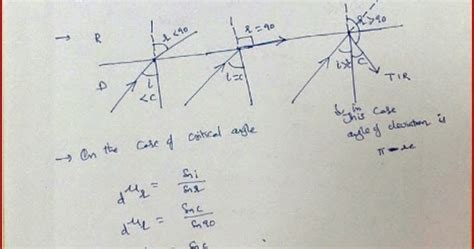 → R
r<90
r=90
r>90
D
i
<C
i=c
i>C
TIR
in this case
angle of deviation is
→ On the case of critical angle
dμr = sin i / sin r
dμr = sin c / sin 90
sin c